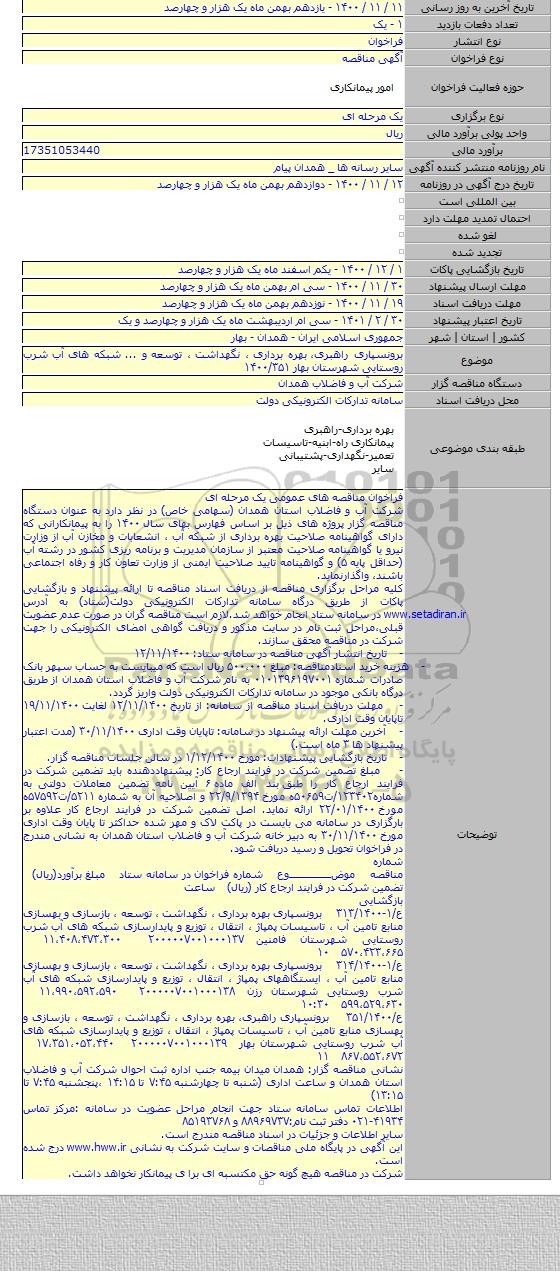 تاریخ آخرین به روز رسانی ۱۱ / ۱۱ / ۱۴۰۰ - یازدهم بهمن ماه یک هزار و چهارصد
تعداد دفعات بازدید ۱ - یک
نوع انتشار فراخوان
نوع فراخوان آگهی مناقصه
حوزه فعالیت فراخوان امور پیمانکاری
نوع برگزاری یک مرحله ای
واحد پولی برآورد مالی ریال
برآورد مالی 17351053440
نام روزنامه منتشر کننده آگهی سایر رسانه ها _ همدان پیام
تاریخ درج آگهی در روزنامه ۱۲ / ۱۱ / ۱۴۰۰ - دوازدهم بهمن ماه یک هزار و چهارصد
بین المللی است
احتمال تمدید مهلت دارد
لغو شده
تجدید شده
تاریخ بازگشایی پاکات ۱ / ۱۲ / ۱۴۰۰ - یکم اسفند ماه یک هزار و چهارصد
مهلت ارسال پیشنهاد ۳۰ / ۱۱ / ۱۴۰۰ - سی ام بهمن ماه یک هزار و چهارصد
مهلت دریافت اسناد ۱۹ / ۱۱ / ۱۴۰۰ - نوزدهم بهمن ماه یک هزار و چهارصد
تاریخ اعتبار پیشنهاد ۳۰ / ۲ / ۱۴۰۱ - سی ام اردیبهشت ماه یک هزار و چهارصد و یک
کشور | استان | شهر جمهوری اسلامی ایران - همدان - بهار
موضوع برونسپاری راهبری، بهره برداری ، نگهداشت ، توسعه و ... شبکه های آب شرب
روستایی شهرستان بهار ۱۴۰۰/۳۵۱
دستگاه مناقصه گزار شرکت آب و فاضلاب همدان
محل دریافت اسناد سامانه تدارکات الکترونیکی دولت
طبقه بندی موضوعی
بهره برداری-راهبری
پیمانکاری راه-ابنیه-تاسیسات
تعمیر-نگهداری-پشتیبانی
سایر
توضیحات
فراخوان مناقصه های عمومی یک مرحله ای
شرکت آب و فاضلاب استان همدان (سهامی خاص) در نظر دارد به عنوان دستگاه
مناقصه گزار پروژه های ذیل بر اساس فهارس بهای سال ۱۴۰۰ را به پیمانکارانی که
دارای گواهینامه صلاحیت بهره برداری از شبکه آب ، انشعابات و مخازن آب از وزارت
نیرو یا گواهینامه صلاحیت معتبر از سازمان مدیریت و برنامه ریزی کشور در رشته آب
(حداقل پایه ۵) و گواهینامه تایید صلاحیت ایمنی از وزارت تعاون کار و رفاه اجتماعی
باشند، واگذارنماید.
کلیه مراحل برگزاری مناقصه از دریافت اسناد مناقصه تا ارائه پیشنهاد و بازگشایی
پاکات از طریق درگاه سامانه تدارکات الکترونیکی دولت(ستاد) به آدرس
www.setadiran.ir در سامانه ستاد انجام خواهد شد.لازم است مناقصه گران در صورت عدم عضویت
قبلی،مراحل ثبت نام در سایت مذکور و دریافت گواهی امضای الکترونیکی را جهت
شرکت در مناقصه محقق سازند.
- تاریخ انتشار آگهی مناقصه در سامانه ستاد: ۱۲/۱۱/۱۴۰۰
- هزینه خرید اسنادمناقصه: مبلغ ۵۰۰،۰۰۰ ریال است که میبایست به حساب سپهر بانک
صادرات شماره ۰۱۰۱۳۹۶۱۹۷۰۰۱ به نام شرکت آب و فاضلاب استان همدان از طریق
درگاه بانکی موجود در سامانه تدارکات الکترونیکی دولت واریز گردد.
- مهلت دریافت اسناد مناقصه از سامانه: از تاریخ ۱۲/۱۱/۱۴۰۰ لغایت ۱۹/۱۱/۱۴۰۰
تاپایان وقت اداری.
- آخرین مهلت ارائه پیشنهاد در سامانه: تاپایان وقت اداری ۳۰/۱۱/۱۴۰۰ (مدت اعتبار
پیشنهاد ها ۳ ماه است.)
- تاریخ بازگشایی پیشنهادات: مورخ ۱/۱۲/۱۴۰۰ در سالن جلسات مناقصه گزار.
- مبلغ تضمین شرکت در فرایند ارجاع کار: پیشنهاددهنده باید تضمین شرکت در
فرایند ارجاع کار را طبق بند الف ماده ۶ آیین نامه تضمین معاملات دولتی به
شماره۱۲۳۴۰۲/ت۵۰۶۵۹ه مورخ ۲۲/۹/۱۳۹۴ و اصلاحیه آن به شماره ۵۲۱۱/ت۵۷۵۹۲ه
مورخ ۲۲/۰۱/۱۴۰۰ ارائه نماید. اصل تضمین شرکت در فرایند ارجاع کار علاوه بر
بارگزاری در سامانه می بایست در پاکت لاک و مهر شده حداکثر تا پایان وقت اداری
مورخ ۳۰/۱۱/۱۴۰۰ به دبیر خانه شرکت آب و فاضلاب استان همدان به نشانی مندرج
در فراخوان تحویل و رسید دریافت شود.
شماره
مناقصه موضـــــــــوع شماره فراخوان در سامانه ستاد مبلغ برآورد(ریال)
تضمین شرکت در فرایند ارجاع کار (ریال) ساعت
بازگشایی
ع/۱-۳۱۳/۱۴۰۰ برونسپاری بهره برداری ، نگهداشت ، توسعه ، بازسازی و بهسازی
منابع تامین آب ، تاسیسات پمپاژ ، انتقال ، توزیع و پایدارسازی شبکه های آب شرب
روستایی شهرستان فامنین ۲۰۰۰۰۰۷۰۰۱۰۰۰۱۳۷ ۱۱،۴۰۸،۴۷۳،۳۰۰
۵۷۰،۴۲۳،۶۶۵ ۱۰
ع/۱-۳۱۴/۱۴۰۰ برونسپاری بهره برداری ، نگهداشت ، توسعه ، بازسازی و بهسازی
منابع تامین آب ، ایستگاههای پمپاژ ، انتقال ، توزیع و پایدارسازی شبکه های آب
شرب روستایی شهرستان رزن ۲۰۰۰۰۰۷۰۰۱۰۰۰۱۳۸ ۱۱،۹۹۰،۵۹۲،۵۹۰
۵۹۹،۵۲۹،۶۳۰ ۱۰:۳۰
ع/۳۵۱/۱۴۰۰ برونسپاری راهبری، بهره برداری ، نگهداشت ، توسعه ، بازسازی و
بهسازی منابع تامین آب ، تاسیسات پمپاژ ، انتقال ، توزیع و پایدارسازی شبکه های
آب شرب روستایی شهرستان بهار ۲۰۰۰۰۰۷۰۰۱۰۰۰۱۳۹ ۱۷،۳۵۱،۰۵۳،۴۴۰
۸۶۷،۵۵۲،۶۷۲ ۱۱
نشانی مناقصه گزار: همدان میدان بیمه جنب اداره ثبت احوال شرکت آب و فاضلاب
استان همدان و ساعت اداری (شنبه تا چهارشنبه ۷:۴۵ تا ۱۴:۱۵ ،پنجشنبه ۷:۴۵ تا
۱۳:۱۵)
اطلاعات تماس سامانه ستاد جهت انجام مراحل عضویت در سامانه :مرکز تماس
۰۲۱-۴۱۹۳۴ دفتر ثبت نام:۸۸۹۶۹۷۳۷ و ۸۵۱۹۳۷۶۸
سایر اطلاعات و جزئیات در اسناد مناقصه مندرج است.
این آگهی در پایگاه ملی مناقصات و سایت شرکت به نشانی www.hww.ir درج شده
است.
شرکت در مناقصه هیچ گونه حق مکتسبه ای برا ی پیمانکار نخواهد داشت.